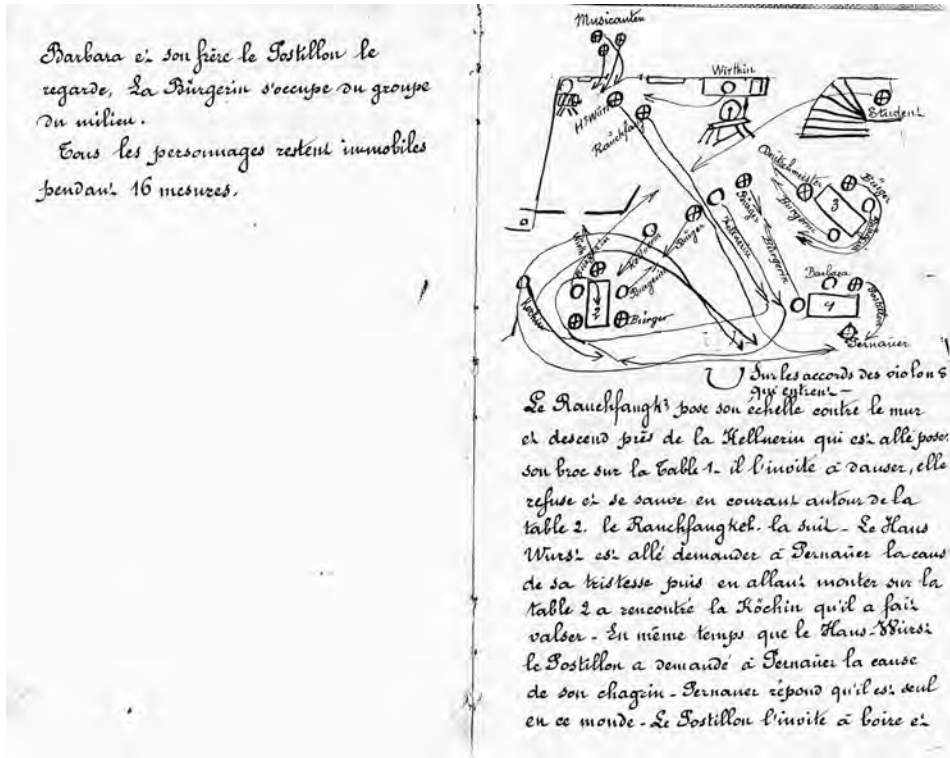 Barbara et son frère le Postillon le
regarde, La Bürgerin s'occupe du groupe
du milieu.
Tous les personnages restent immobiles
pendant 16 mesures.
Musicanten
Wirthin
Hs Wurst
Rauchfang
Student
Deutschmeister
Bürger
Bürgerin
3
Bürger
Kellnerin
Bürger
Bürgerin
Bürgerin
Kellnerin
Bürgerin
Bürger
2
Köchin
Barbara
4
Postillon
Pernauer
Sur les accords des violons
qui entrent —
Le Rauchfangk3 pose son échelle contre le mur
et descend près de la Kellnerin qui est allé poser
son broc sur la Table 1 - il l'invite à danser, elle
refuse et se sauve en courant autour de la
table 2. le Rauchfangkeh. la suit - Le Hans
Wurst est allé demander à Pernauer la caus
de sa tristesse puis en allant monter sur la
table 2 a rencontré la Köchin qu'il a fait
valser - En même temps que le Hans-Würst
le Postillon a demandé à Pernauer la cause
de son chagrin - Pernauer répond qu'il est seul
en ce monde - Le Postillon l'invite à boire et